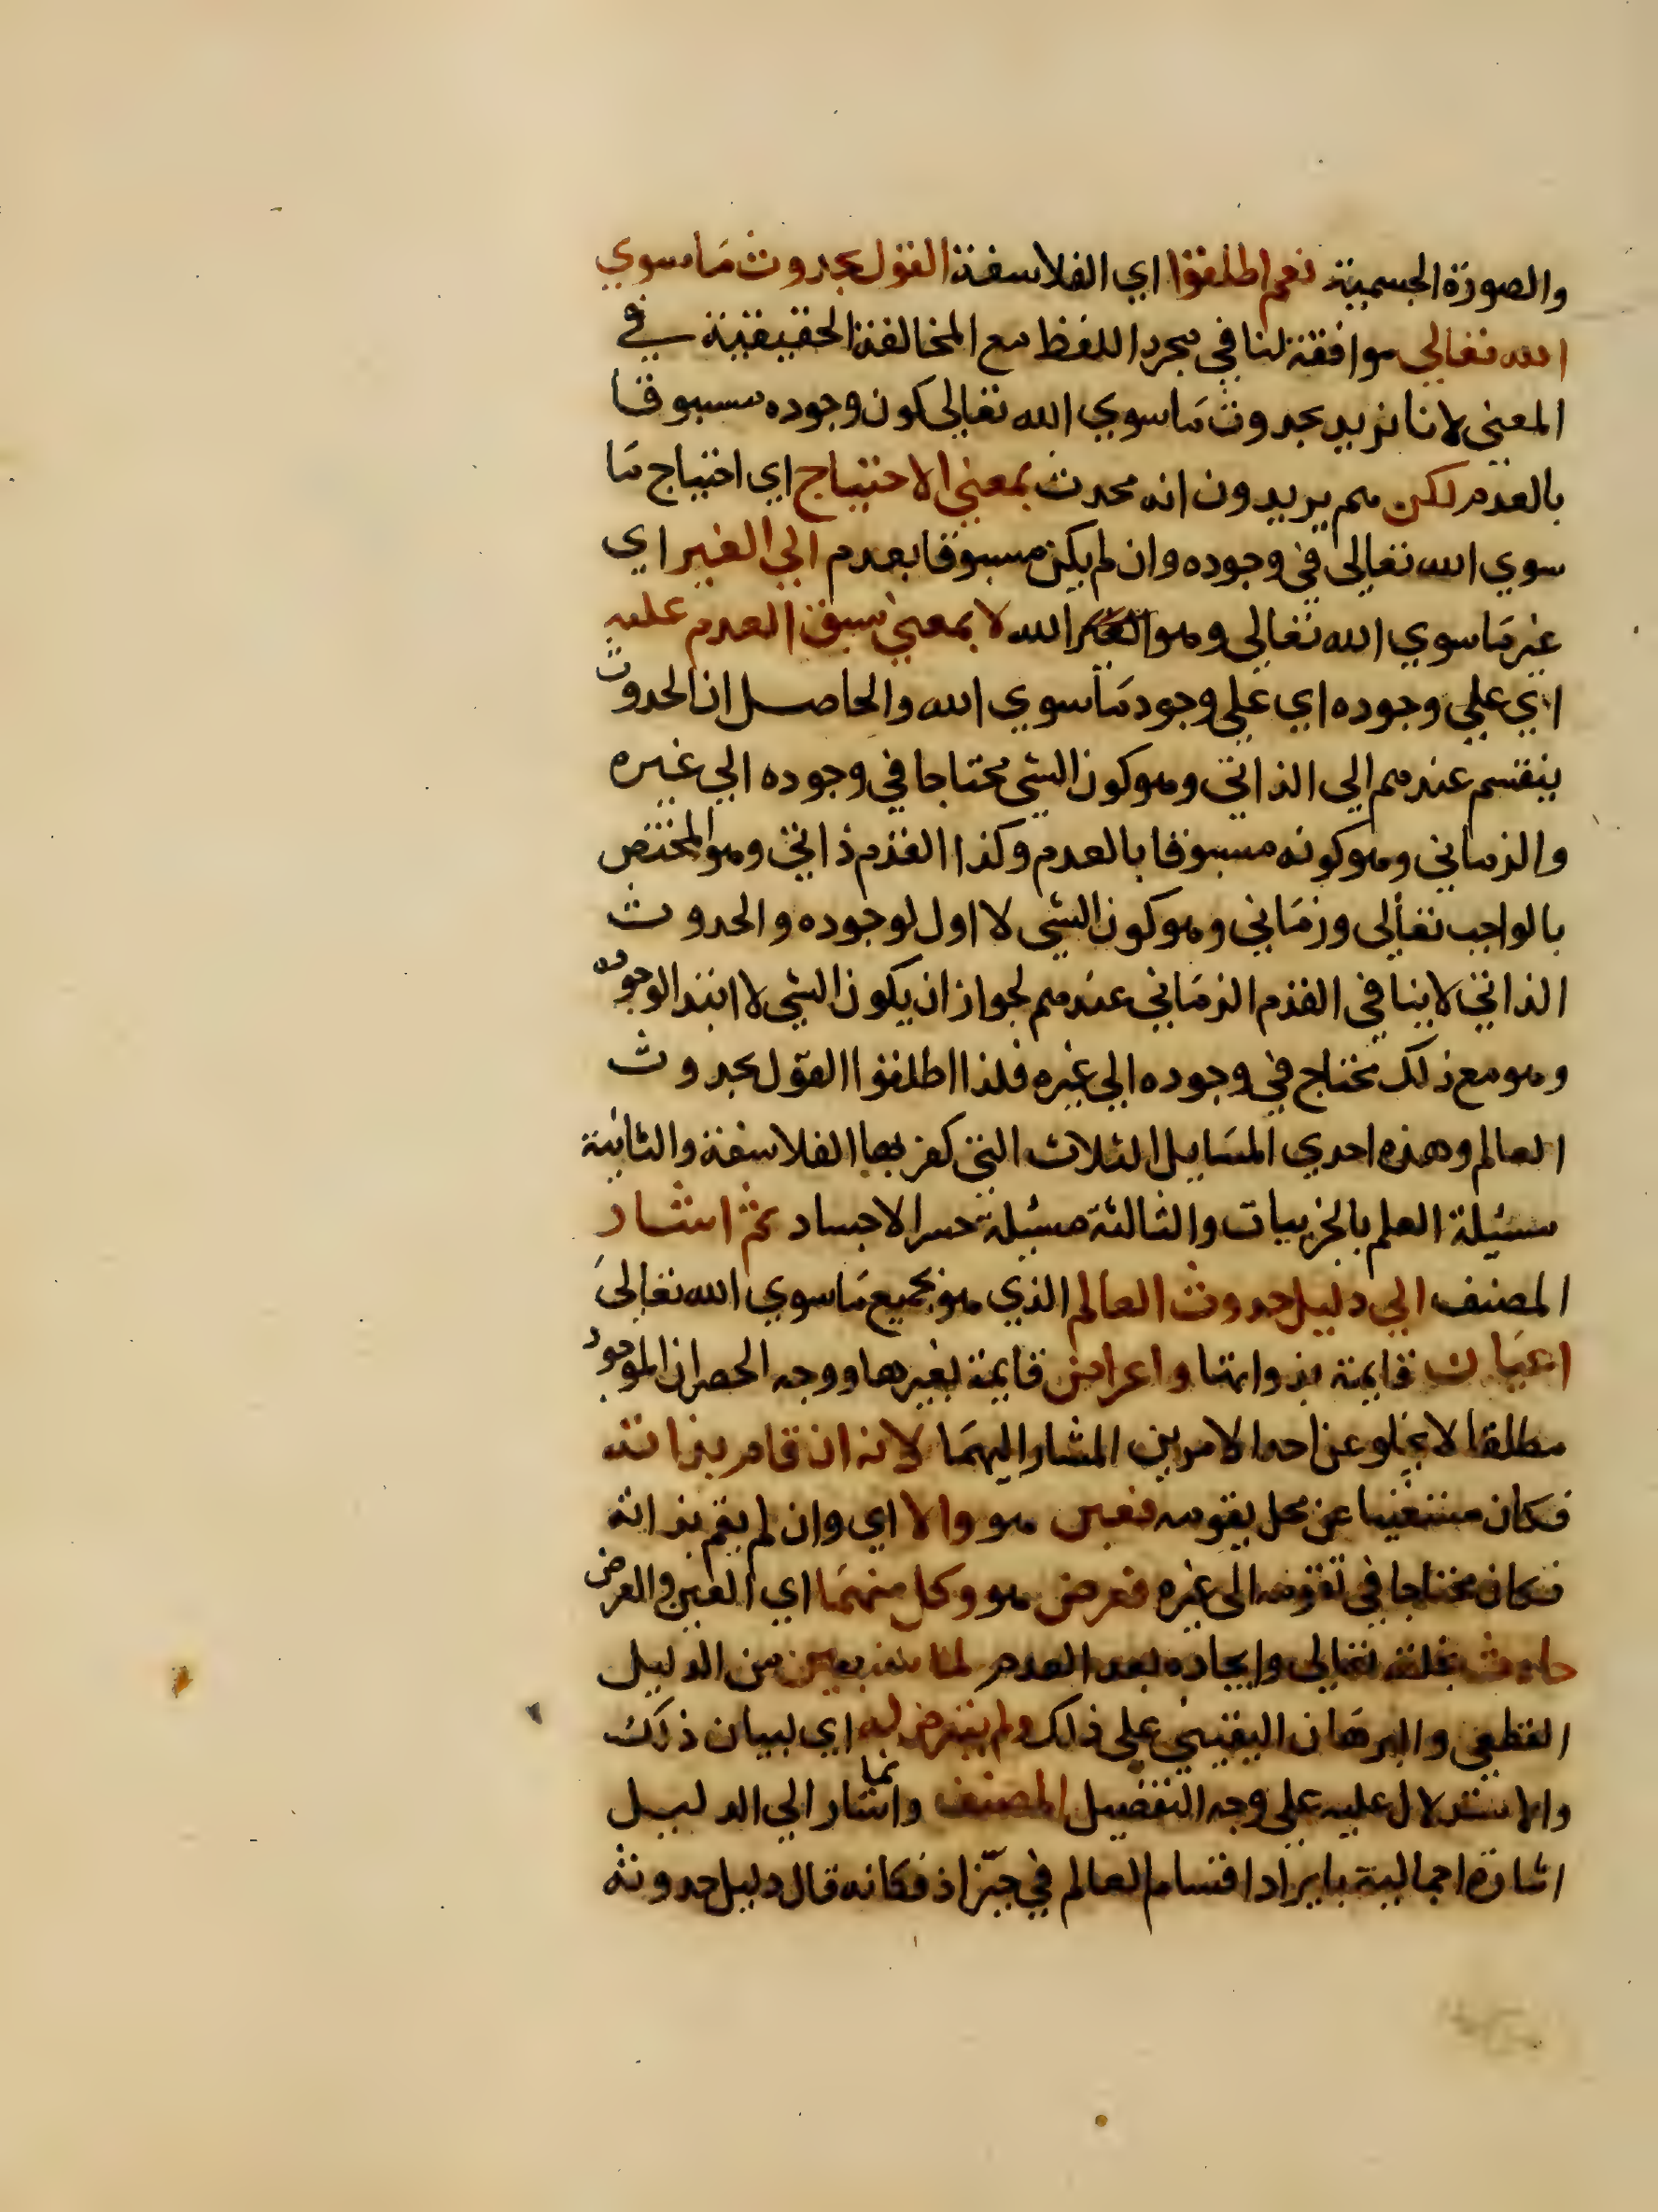 والصورة الجسمية نعم اطلقوا اي الفلاسفة القول بحدوث ما سوي
الله تعالي موافقة لنا في مجرد اللفظ مع المخالفة الحقيقية في
المعني لانا نريد بحدوث ما سوي الله تعالي كون وجوده مسبوقا
بالعدم لكن هم يريدون انه محدث بمعني الاحتياج اي احتياج ما
سوي الله تعالي في وجوده وان لم يكن مسبوقا بعدم الي الغير اي
غير ما سوي الله تعالي وهو الله لا بمعني سبق العدم عليه
اي علي وجوده اي علي وجود ما سوي الله والحاصل ان الحدوث
ينقسم عندهم الي الذاتي وهو كون الشي محتاجا في وجوده الي غيره
والزماني وهو كونه مسبوقا بالعدم وكذا القدم ذاتي وهو المختص
بالواجب تعالي وزماني وهو كون الشي لا اول لوجوده والحدوث
الذاتي لا ينافي القدم الزماني عندهم لجواز ان يكون الشي لا ابتدا لوجوده
وهو مع ذلك محتاج في وجوده الي غيره فلذا اطلقوا القول بحدوث
العالم وهذه احدي المسايل الثلاث التي كفر بها الفلاسفة والثانية
مسئلة العلم بالجزييات والثالثة مسئلة حشر الاجساد ثم اشار
المصنف الي دليل حدوث العالم الذي هو جميع ما سوي الله تعالي
اعيان قايمة بذواتها واعراض قايمة بغيرها ووجه الحصر ان الموجود
مطلقا لا يخلو عن احد الامرين المشار اليهما لانه ان قام بذاته
فكان مستغنيا عن محل يقومه فعين هو والا اي وان لم يقم بذاته
فكان محتاجا في تقومه الي غيره فعرض هو وكل منهما اي العين والعرض
حادث بخلقه تعالي وايجاده بعد العدم لما سنبين من الدليل
القطعي والبرهان اليقيني علي ذلك ولم يتعرض له اي لبيان ذلك
والاستدلال عليه علي وجه التفصيل المصنف وانما اشار الي الدليل
اشارة اجمالية بايراد اقسام العالم في حيز اذ فكانه قال دليل حدوثه